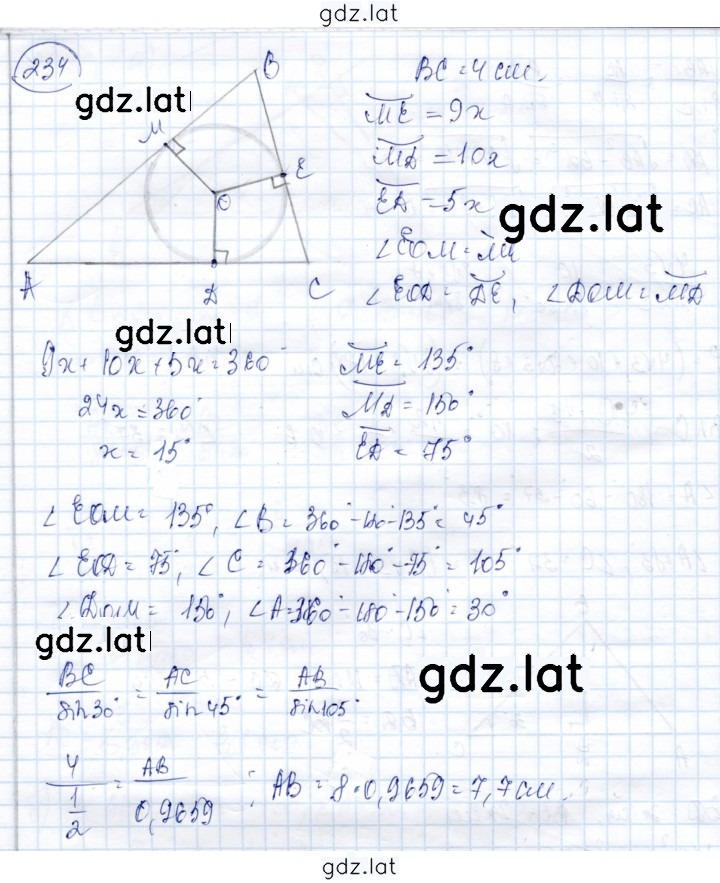 gdz.lat
234
B
BC = 4 см.
gdz.lat
M
ME = 9x
MD = 10x
E
O
ED = 5x
gdz.lat
∠EOM = ME
A
D
C
∠EOD = DE, ∠DOM = MD
gdz.lat
9x + 10x + 5x = 360° ME = 135°
24x = 360° MD = 150°
x = 15° ED = 75°
∠EOM = 135°, ∠B = 360° - 180° - 135° = 45°
∠EOD = 75°, ∠C = 360° - 180° - 75° = 105°
∠DOM = 150°, ∠A = 360° - 180° - 150° = 30°
gdz.lat
BC/sin30° = AC/sin45° = AB/sin105°
gdz.lat
4/(1/2) = AB/0,9659; AB = 8·0,9659 = 7,7 см.
gdz.lat